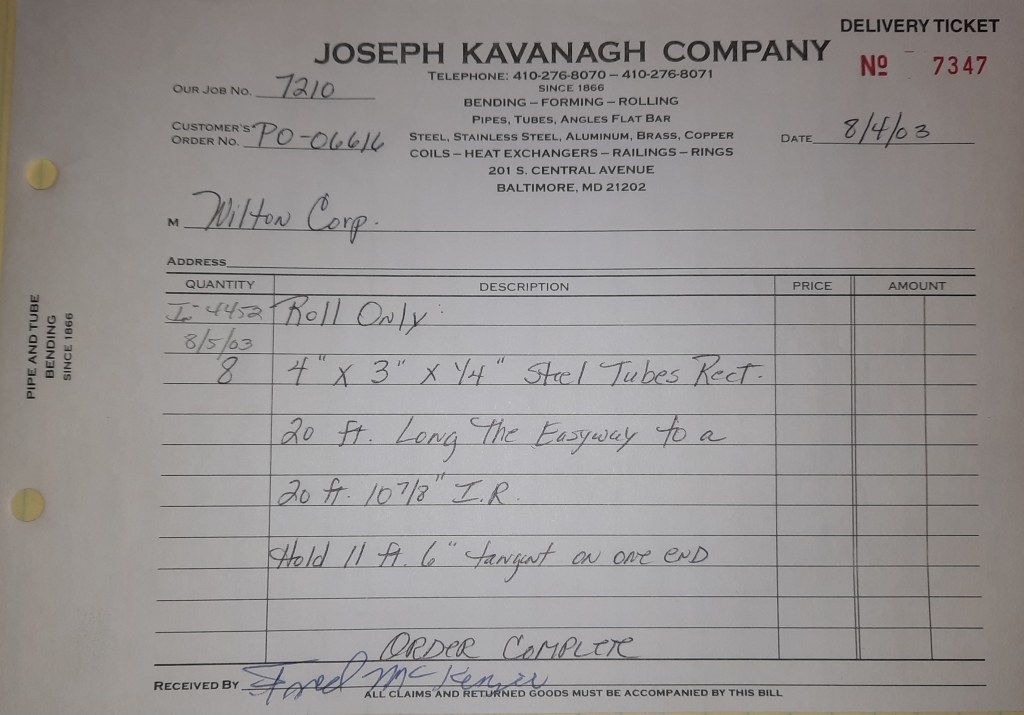 DELIVERY TICKET
JOSEPH KAVANAGH COMPANY
Nº 7347
TELEPHONE: 410-276-8070 – 410-276-8071
SINCE 1866
OUR JOB NO. 7210
BENDING – FORMING – ROLLING
PIPES, TUBES, ANGLES FLAT BAR
CUSTOMER'S ORDER NO. PO-06616
STEEL, STAINLESS STEEL, ALUMINUM, BRASS, COPPER
DATE 8/4/03
COILS – HEAT EXCHANGERS – RAILINGS – RINGS
201 S. CENTRAL AVENUE
BALTIMORE, MD 21202
M Wilton Corp.
ADDRESS
QUANTITY DESCRIPTION PRICE AMOUNT
In- 4452 Roll Only:
8/5/03
8 4" x 3" x 1/4" Steel Tubes Rect.
20 ft. Long The Easyway to a
20 ft. 10 7/8" I.R.
Hold 11 ft. 6" tangent on one end
ORDER COMPLETE
RECEIVED BY Fred McKenzie
ALL CLAIMS AND RETURNED GOODS MUST BE ACCOMPANIED BY THIS BILL
PIPE AND TUBE
BENDING
SINCE 1866